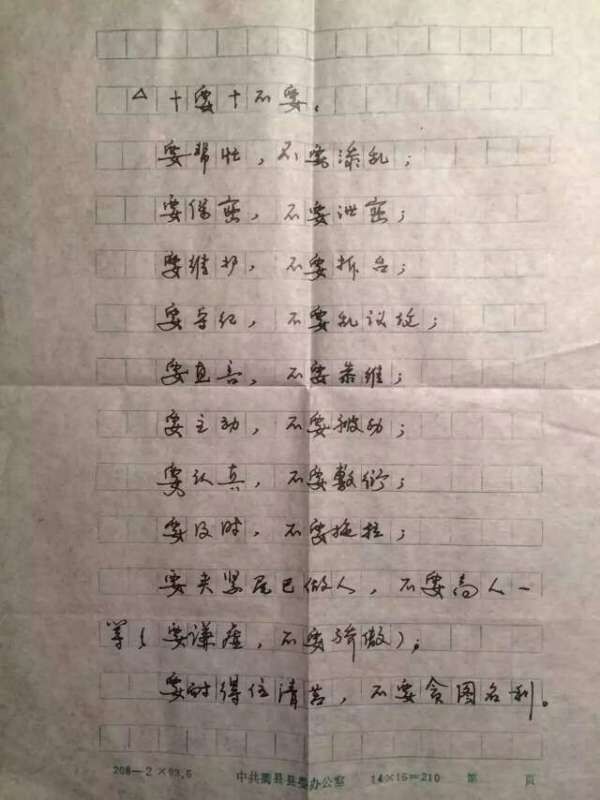 △十要十不要。
要帮忙，不要添乱；
要保密，不要泄密；
要维护，不要拆台；
要守纪，不要乱议政；
要直言，不要恭维；
要主动，不要被动；
要认真，不要敷衍；
要及时，不要拖拉；
要夹紧尾巴做人，不要高人一
等（要谦虚，不要骄傲）；
要耐得住清苦，不要贪图名利。
208—2×93.6 中共 县县委办公室 14×15=210 第 页